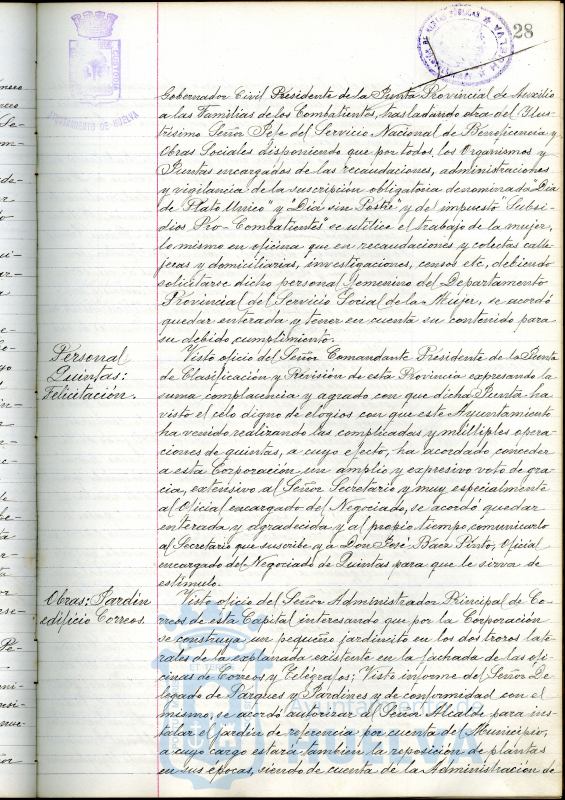 28
AYUNTAMIENTO DE HUELVA
Gobernador Civil Presidente de la Junta Provincial de Auxilio
a las Familias de los Combatientes, trasladando otra del Ilus-
trísimo Señor Jefe del Servicio Nacional de Beneficencia y
Obras Sociales disponiendo que por todos los Organismos y
Juntas encargados de las recaudaciones, administraciones
y vigilancia de la suscripción obligatoria denominada "Día
de Plato Unico" y "Día sin Postre" y del impuesto "Subsi-
dios Pro-Combatientes" se utilice el trabajo de la mujer,
lo mismo en oficina que en recaudaciones y colectas calle-
jeras y domiciliarias, investigaciones, censos etc, debiendo
solicitarse dicho personal femenino del Departamento
Provincial del Servicio Social de la Mujer, se acordó
quedar enterada y tener en cuenta su contenido para
su debido cumplimiento.
Personal
Quintas:
Felicitacion.
Visto oficio del Señor Comandante Presidente de la Junta
de Clasificación y Revisión de esta Provincia expresando la
suma complacencia y agrado con que dicha Junta ha
visto el celo digno de elogios con que este Ayuntamiento
ha venido realizando las complicadas y múltiples opera-
ciones de quintas, a cuyo efecto, ha acordado conceder
a esta Corporación un amplio y expresivo voto de gra-
cia, extensivo al Señor Secretario y muy especialmente
al Oficial encargado del Negociado, se acordó quedar
enterada y agradecida y al propio tiempo, comunicarlo
al Secretario que suscribe y a Don José Báez Pinto, Oficial
encargado del Negociado de Quintas para que le sirva de
estímulo.
Obras: Jardin
edificio Correos.
Visto oficio del Señor Administrador Principal de Co-
rreos de esta Capital interesando que por la Corporación
se construya un pequeño jardincito en los dos trozos late-
rales de la explanada existente en la fachada de las ofi-
cinas de Correos y Telégrafos; Visto informe del Señor De-
legado de Parques y Jardines y de conformidad con el
mismo, se acordó autorizar al Señor Alcalde para ins-
talar el jardín de referencia por cuenta del Municipio,
a cuyo cargo estará también la reposición de plantas
en sus épocas, siendo de cuenta de la Administración de
Ayuntamiento de
HUELVA